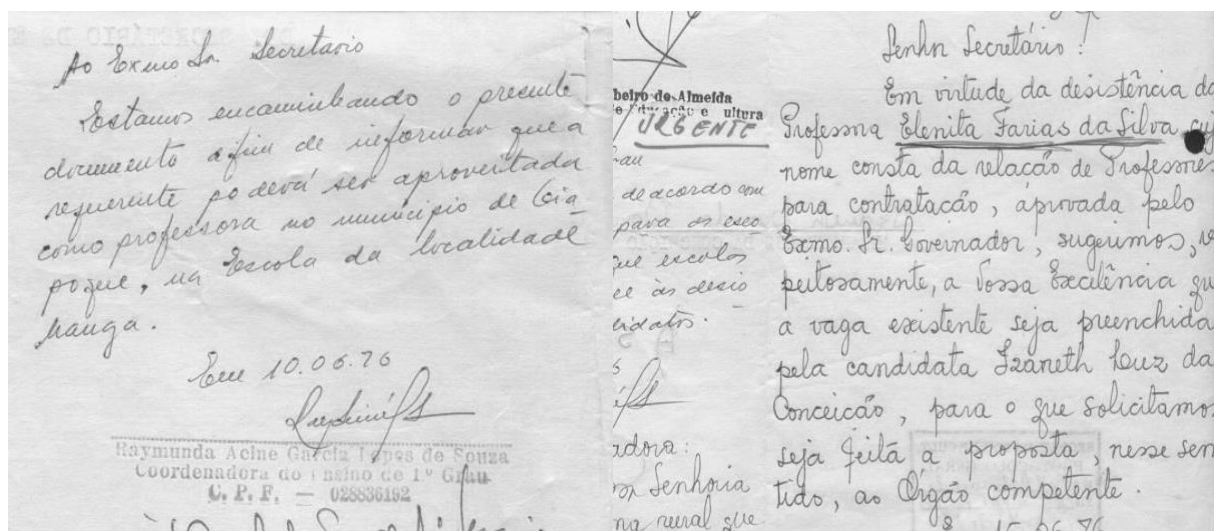 Ao Exmo Sr. Secretario
Estamos encaminhando o presente
documento afim de informar que a
requerente poderá ser aproveitada
como professora no município de Oia
poque, na Escola da localidade
Manga.
Em 10.06.76
Raymunda Acine Garcia Lopes de Souza
Coordenadora do Ensino de 1º Grau
C. P. F. — 028836192
beiro de Almeida
e Educação e ultura
URGENTE
rau
de acordo com
para as esco
que escolas
às desis
didatos.
adora:
Senhoria
na rural que
Senhor Secretário!
Em virtude da desistência da
Professora Elenita Farias da Silva, cuj
nome consta da relação de Professores
para contratação, aprovada pelo
Exmo. Sr. Governador, sugerimos, r
peitosamente, a Vossa Excelência qu
a vaga existente seja preenchida
pela candidata Izaneth Luz da
Conceição, para o que solicitamos
seja feita a proposta, nesse sen
tido, ao Órgão competente.